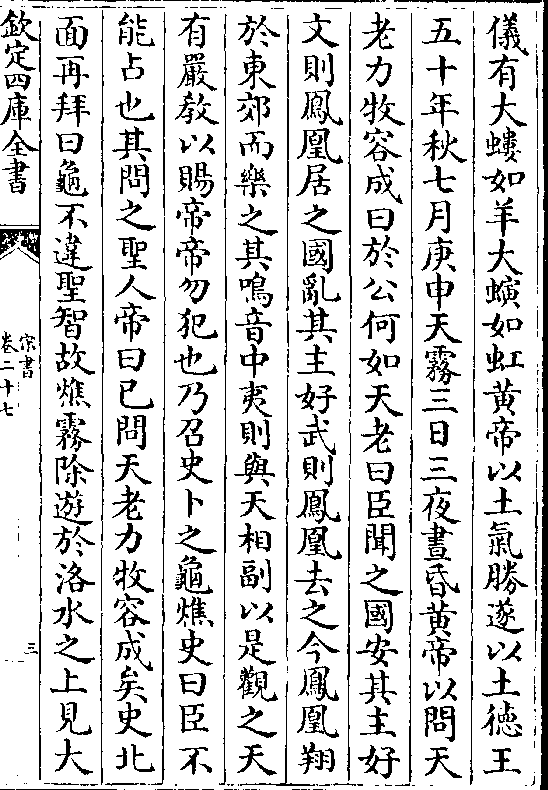 儀有大螻如羊大螾如虹黄帝以土氣勝遂以土徳王
五十年秋七月庚申天霧三日三夜晝昏黄帝以問天
老力牧容成曰於公何如天老曰臣聞之國安其主好
文則鳳凰居之國亂其主好武則鳳凰去之今鳳凰翔
於東郊而樂之其鳴音中夷則與天相副以是觀之天
有嚴教以賜帝帝勿犯也乃召史卜之龜燋史曰臣不
能占也其問之聖人帝曰已問天老力牧容成矣史北
面再拜曰龜不違聖智故燋霧除遊於洛水之上見大
欽定四庫全書
宋書
卷二十七
三